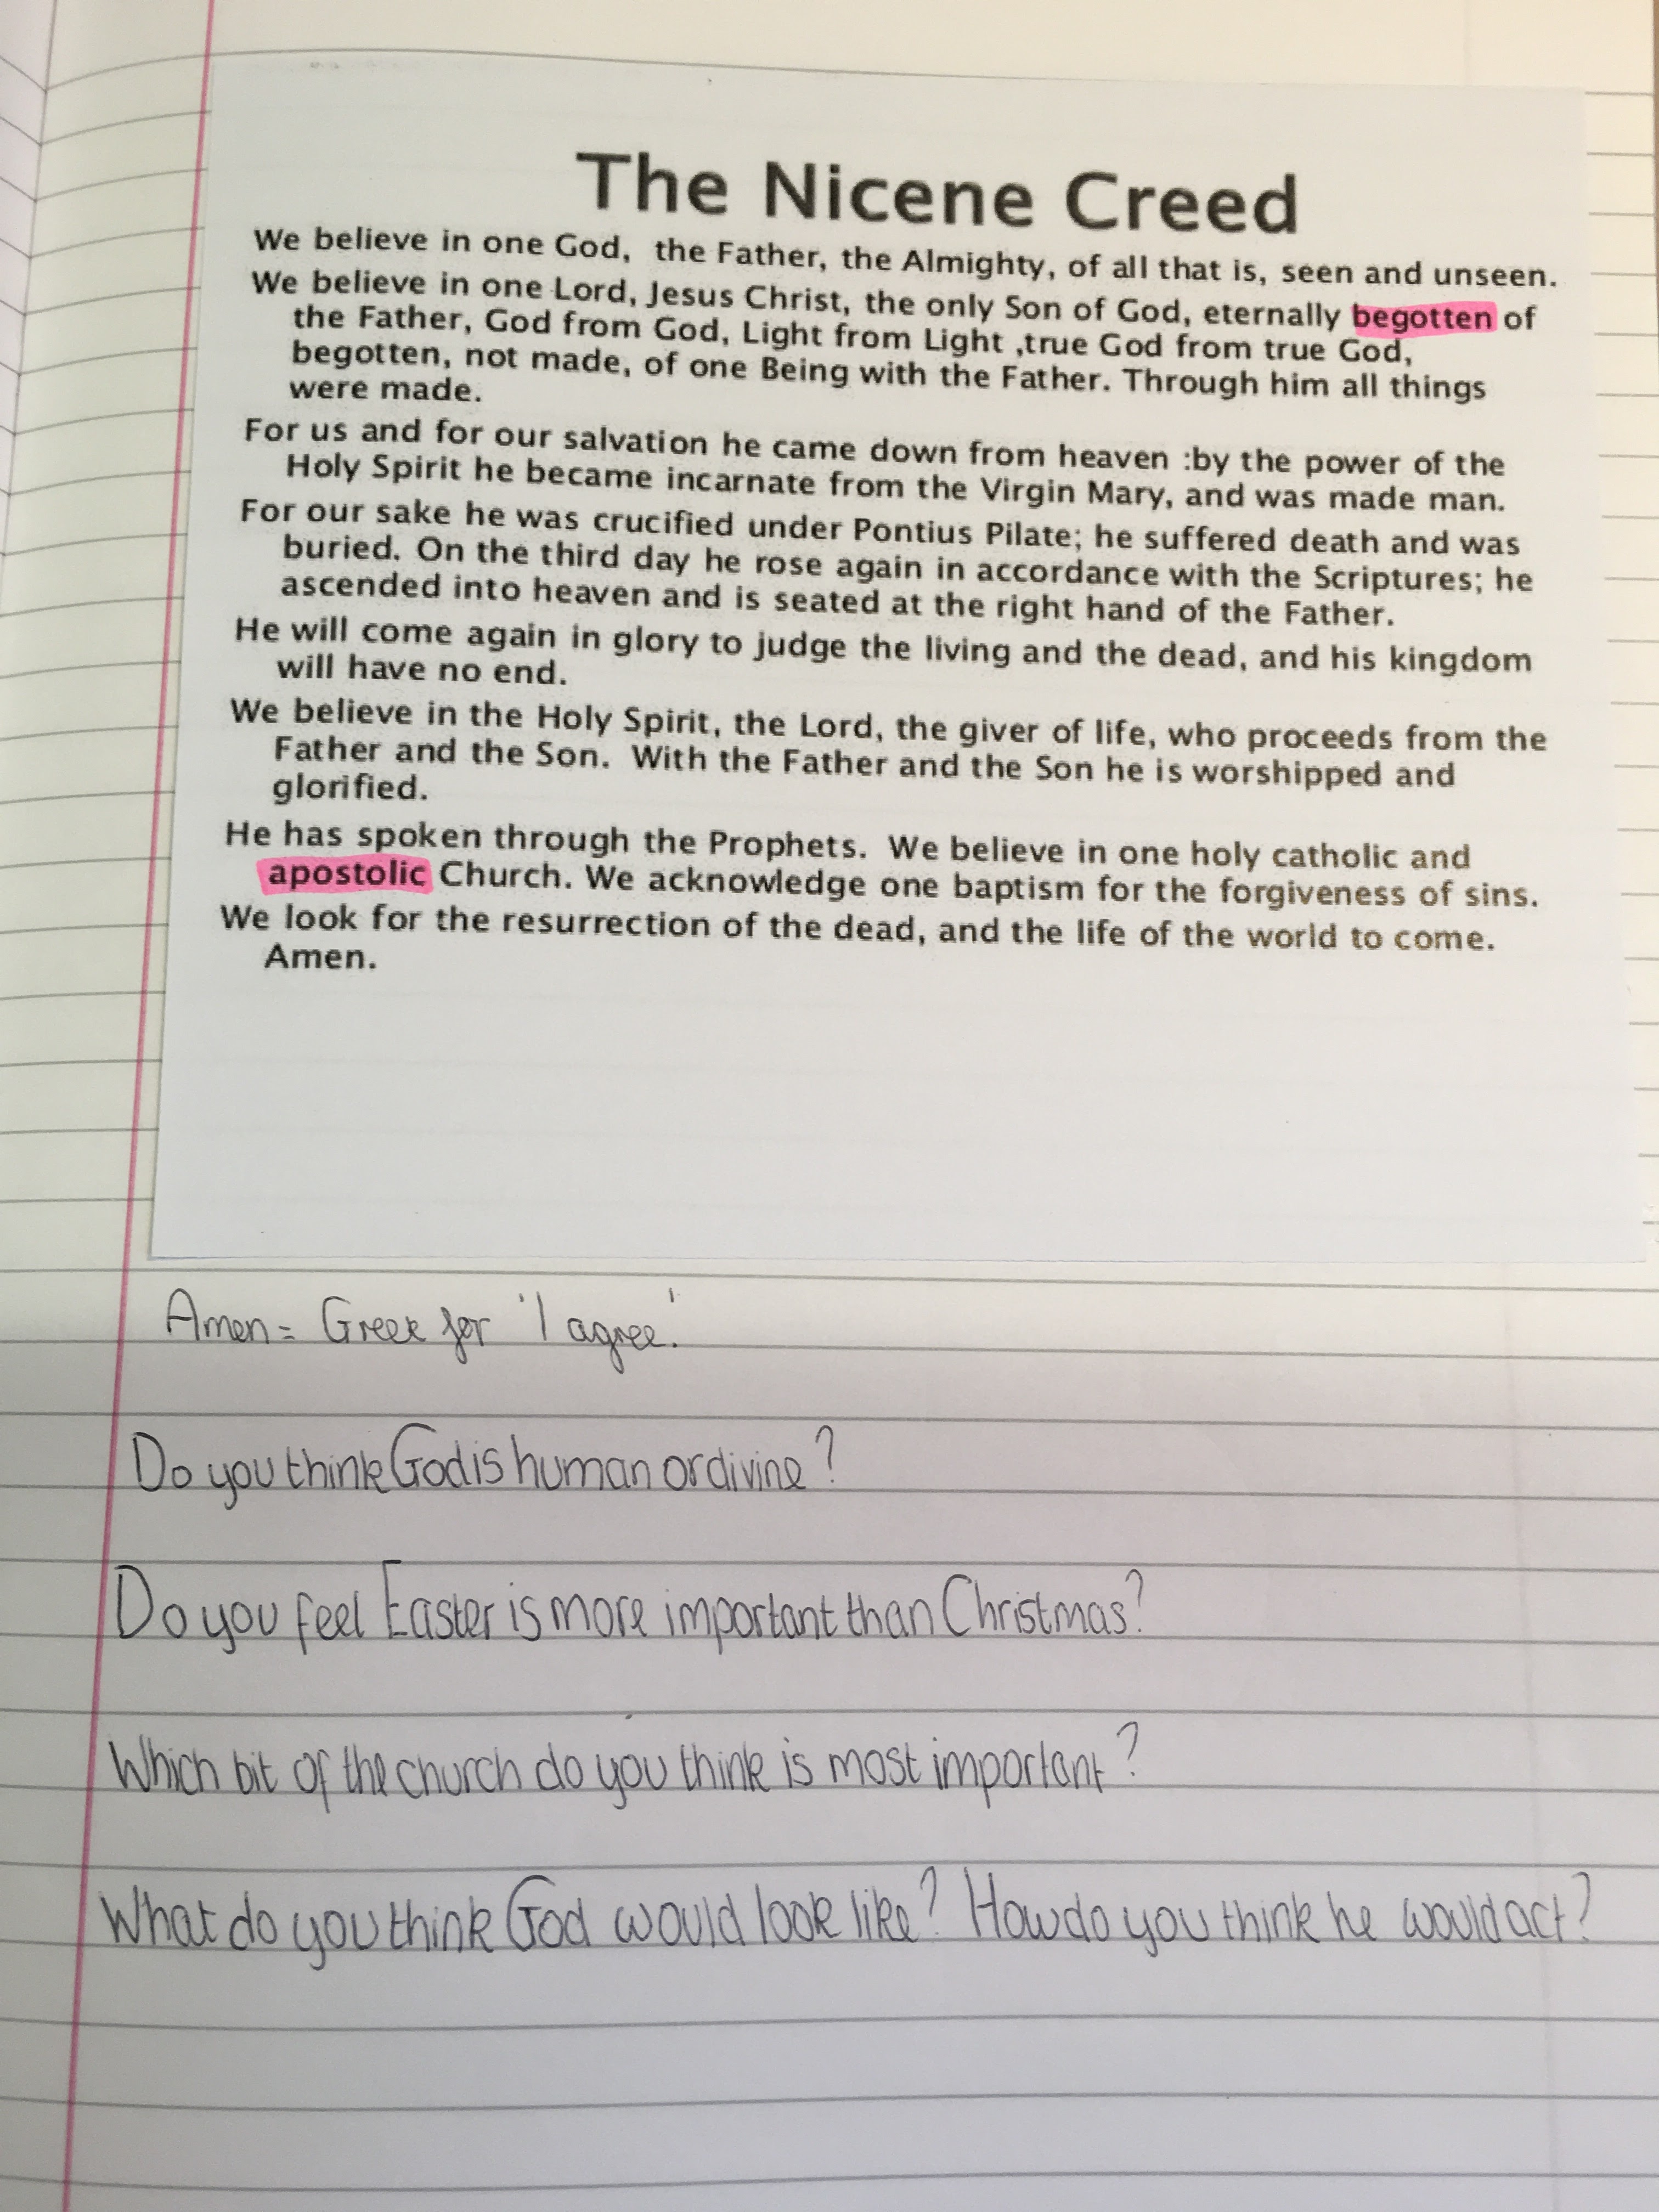 The Nicene Creed
We believe in one God, the Father, the Almighty, of all that is, seen and unseen.
We believe in one Lord, Jesus Christ, the only Son of God, eternally begotten of
the Father, God from God, Light from Light ,true God from true God,
begotten, not made, of one Being with the Father. Through him all things
were made.
For us and for our salvation he came down from heaven :by the power of the
Holy Spirit he became incarnate from the Virgin Mary, and was made man.
For our sake he was crucified under Pontius Pilate; he suffered death and was
buried. On the third day he rose again in accordance with the Scriptures; he
ascended into heaven and is seated at the right hand of the Father.
He will come again in glory to judge the living and the dead, and his kingdom
will have no end.
We believe in the Holy Spirit, the Lord, the giver of life, who proceeds from the
Father and the Son. With the Father and the Son he is worshipped and
glorified.
He has spoken through the Prophets. We believe in one holy catholic and
apostolic Church. We acknowledge one baptism for the forgiveness of sins.
We look for the resurrection of the dead, and the life of the world to come.
Amen.
Amen = Greek for 'I agree.'
Do you think God is human or divine?
Do you feel Easter is more important than Christmas?
Which bit of the church do you think is most important?
What do you think God would look like? How do you think he would act?